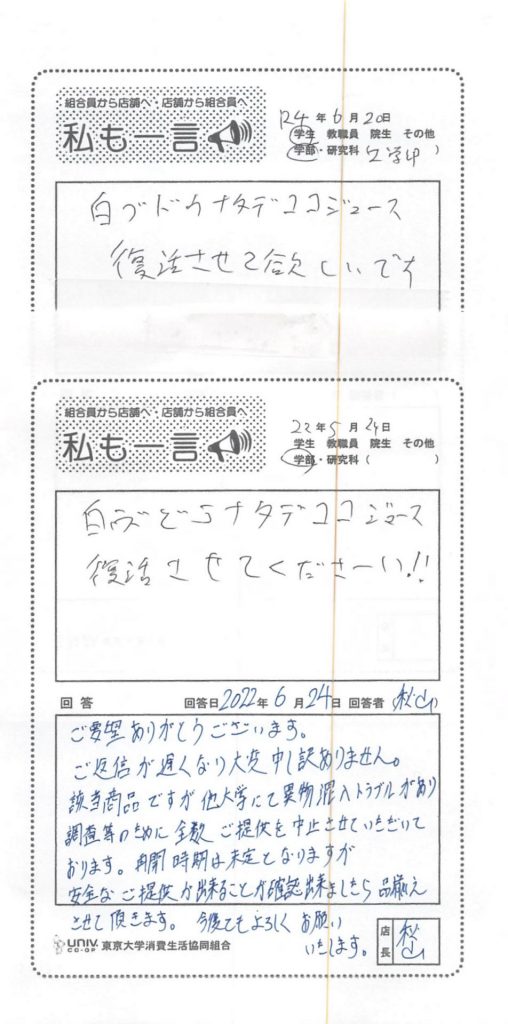 組合員から店舗へ・店舗から組合員へ
私も一言
R4年6月20日
学生 教職員 院生 その他
学部・研究科 文学部 )
白ブドウナタデココジュース
復活させて欲しいです
組合員から店舗へ・店舗から組合員へ
私も一言
22年5月24日
学生 教職員 院生 その他
学部・研究科 ( )
白ぶどうナタデココジュース
復活させてくださーい!!
回答 回答日2022年6月24日 回答者 松山
ご要望ありがとうございます。
ご返信が遅くなり大変申し訳ありません。
該当商品ですが他大学にて異物混入トラブルがあり
調査等のために全数ご提供を中止させていただいて
おります。再開時期は未定となりますが
安全なご提供が出来ることが確認出来ましたら品揃え
させて頂きます。今後ともよろしくお願い
いたします。
UNIV. CO-OP 東京大学消費生活協同組合
店長 松山